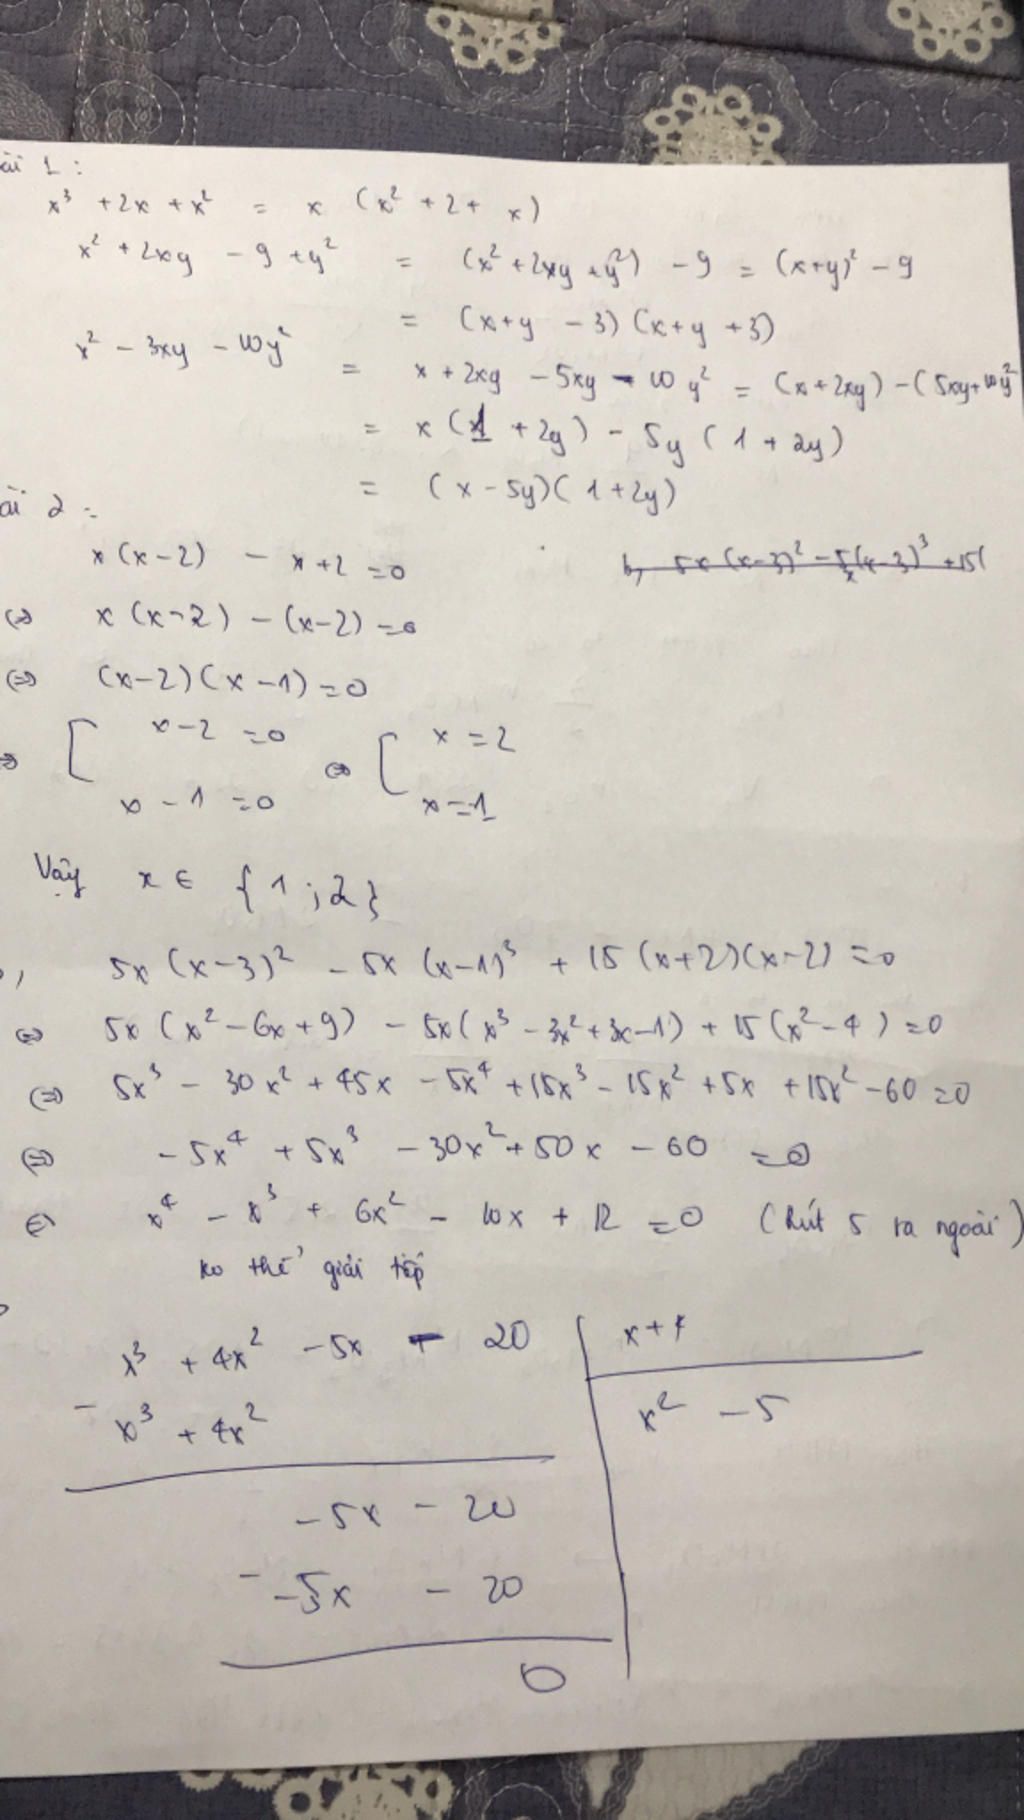 ài 1 :
x³ + 2x + x² = x (x² + 2 + x)
x² + 2xy - 9 + y² = (x² + 2xy + y²) - 9 = (x+y)² - 9
= (x+y - 3) (x+y + 3)
x² - 3xy - 10y² = x + 2xy - 5xy - 10 y² = (x + 2xy) - (5xy + 10y²
= x (1 + 2y) - 5y (1 + 2y)
= (x - 5y)(1 + 2y)
ài 2 :
x(x-2) - x + 2 = 0
b, 5x (x-3)² - 5x(x-3)³ + 15(
⇔ x (x-2) - (x-2) = 0
⇔ (x-2)(x-1) = 0
⇔ [ x-2 = 0 ⇔ [ x = 2
x - 1 = 0 x = 1
Vậy x ∈ {1 ; 2}
, 5x (x-3)² - 5x (x-1)³ + 15 (x+2)(x-2) = 0
⇔ 5x (x² - 6x + 9) - 5x (x³ - 3x² + 3x - 1) + 15 (x² - 4) = 0
⇔ 5x³ - 30x² + 45x - 5x⁴ + 15x³ - 15x² + 5x + 15x² - 60 = 0
⇔ - 5x⁴ + 5x³ - 30x² + 50x - 60 = 0
⇔ x⁴ - x³ + 6x² - 10x + 12 = 0 (Rút 5 ra ngoài)
ko thể giải tiếp
x³ + 4x² - 5x - 20 x + 4
- x³ + 4x² x² - 5
- 5x - 20
- - 5x - 20
0